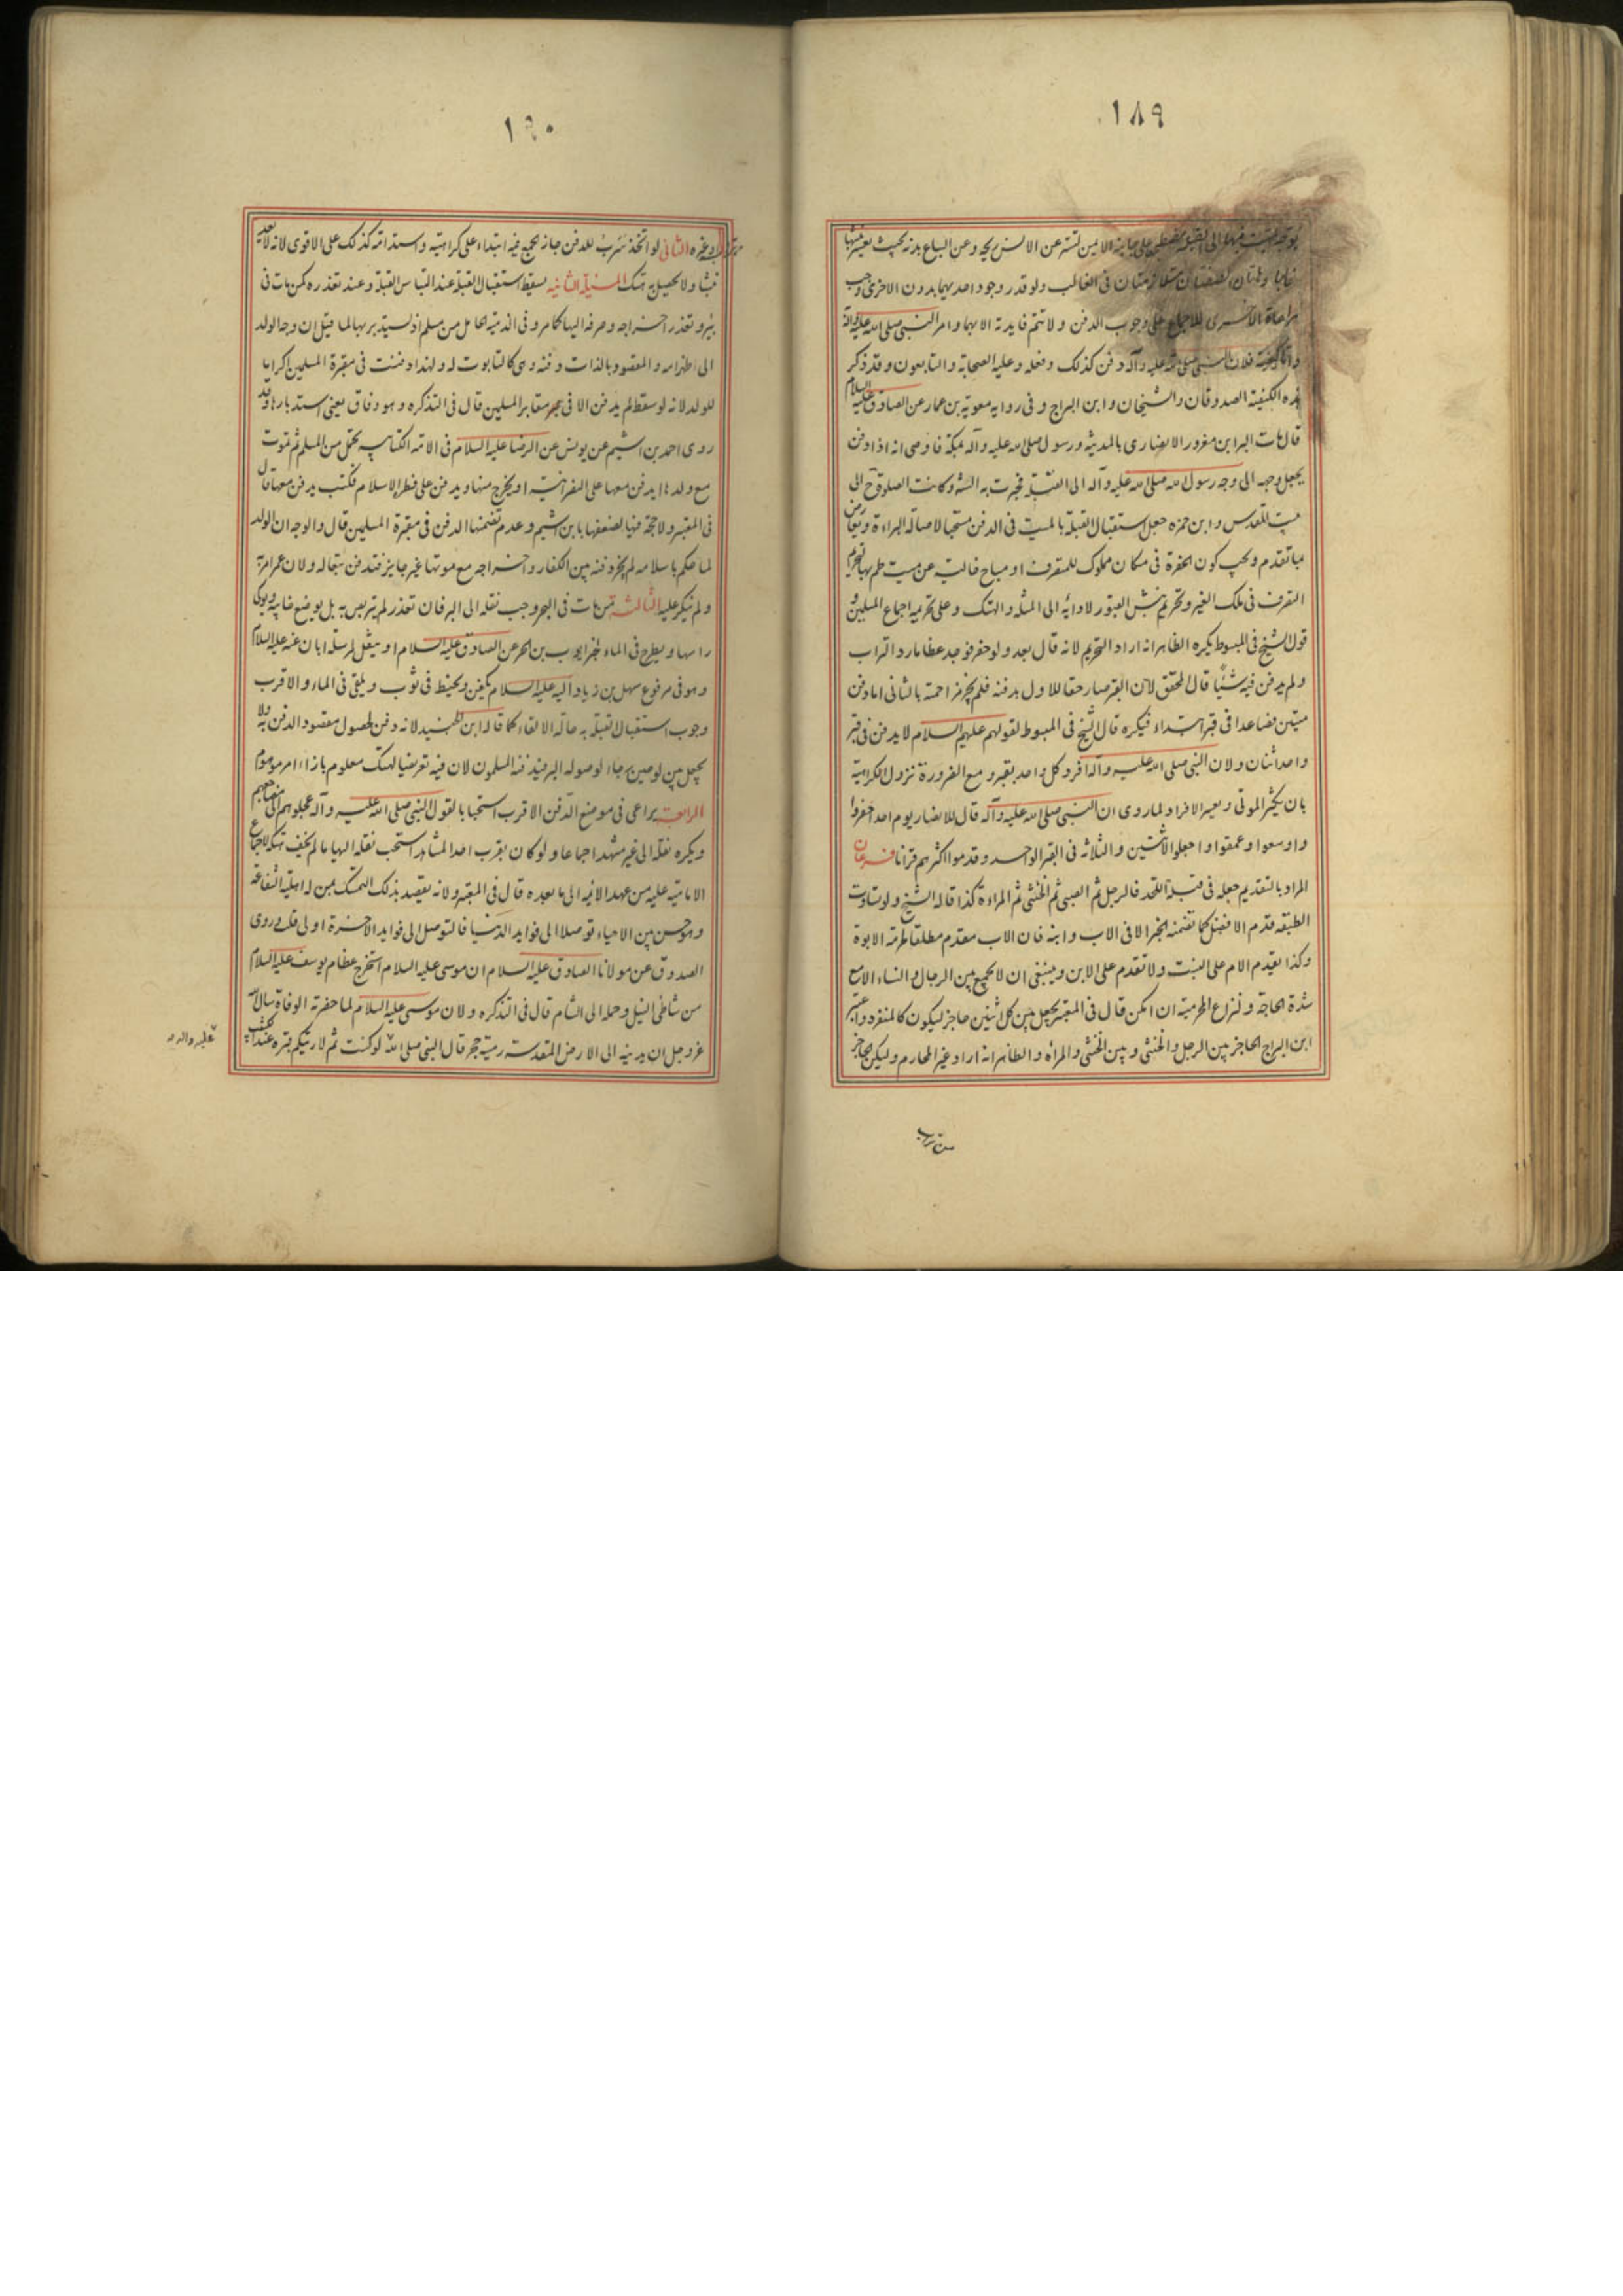 ١٨٩
يوجه الميت فيها الى القبلة مضطجعا على جانبه الايمن لتستر عن الانس ريحه وعن السباع بدنه بحيث يعسر نبشها
غالبا وهاتان الصفتان متلازمتان فى الغالب ولو قدر وجود احديهما بدون الاخرى وجب
مراعاة الاخرى للاجماع على وجوب الدفن ولا تتم فايدته الا بهما وامر النبى صلى الله عليه واله
واما كيفيته فلان النبى صلى الله عليه وآله دفن كذلك وفعله وعليه الصحابة والتابعون وقد ذكر
هذه الكيفية الصدوقان والشيخان وابن البراج وفى رواية معوية بن عمار عن الصادق عليه السلام
قال مات البرا ابن معرور الانصارى بالمدينة ورسول صلى الله عليه وآله بمكة فاوصى انه اذا دفن
يجعل وجهه الى وجه رسول الله صلى الله عليه وآله الى القبلة فجرت به السنة وكانت الصلوة ح الى
بيت المقدس وابن حمزه جعل استقبال القبلة بالميت فى الدفن مستحبا لاصالة البراءة ويعارض
بما تقدم ويجب كون الحفرة فى مكان مملوك للمتصرف او مباح خالية عن ميت
التصرف فى ملك الغير وتحريم نبش القبور لادائه الى المثلة والهتك وعلى تحريمه اجماع المسلمين و
قول الشيخ فى المبسوط يكره الظاهر انه اراد التحريم لانه قال بعد ولو حفر فوجد عظاما رد التراب
ولم يدفن فيه شيئا قال المحقق لان القبر صار حقا للاول بدفنه فلم يجز مزاحمته بالثانى اما دفن
ميتين فصاعدا فى قبر ابتداء فيكره قال الشيخ فى المبسوط لقولهم عليهم السلام لا يدفن فى قبر
واحد اثنان ولان النبى صلى الله عليه وآله افرد كل واحد بقبر ومع الضرورة تزول الكراهية
بان يكثر الموتى ويعسر الافراد لما روى ان النبى صلى الله عليه وآله قال للانصار يوم احد احفروا
واوسعوا وعمقوا واجعلوا الاثنين والثلاثة فى القبر الواحد وقدموا اكثرهم قرآنا فرعان
المراد بالتقديم جعله فى قبلة اللحد فالرجل ثم الصبى ثم الخنثى ثم المراءة كذا قاله الشيخ ولو تساوت
الطبقه قدم الافضل كما تضمنه الخبر الا فى الاب وابنه فان الاب مقدم مطلقا لحرمة الابوة
وكذا تقدم الام على البنت ولا تقدم على الابن وينبغى ان لا يجمع بين الرجال والنساء الا مع
شدة الحاجة و المحرمية ان امكن قال فى المعتبر يجعل بين كل اثنين حاجز ليكون كالمنفرد واعتبر
ابن البراج الحاجز بين الرجل والخنثى وبين الخنثى والمرأة والظاهر انه اراد غير المحارم وليكن الحاجز
من تراب
١٩٠
وغيره الثانى لو اتخذ سرب للدفن جاز بجمع فيه ابتداء على كراهية واستدامته كذلك على الاقوى لانه لا يعد
نبشا ولا يحصل به هتك المسئلة الثانيه يسقط استقبال القبلة عند التباس القبلة وعند تعذره كمن مات فى
بئر وتعذر اخراجه وصرفه اليها كما مر وفى الذمية الحامل من مسلم اذ يستدبر بها لما قيل ان وجه الولد
الى ظهر امه والمقصود بالذات دفنه وهى كالتابوت له ولهذا دفنت فى مقبرة المسلمين اكراما
للولد لانه لو سقط لم يدفن الا فى مقابر المسلمين قال فى التذكره وهو وفاق يعنى استدبارها وقد
روى احمد بن اشيم عن يونس عن الرضا عليه السلام فى الامة الكتابيه تحمل من المسلم ثم تموت
مع ولدها ايدفن معها على النصرانية او يخرج منها ويدفن على فطرة الاسلام فكتب يدفن معها قال
فى المعتبر ولا حجة فيها لضعفها بابن اشيم وعدم تضمنها الدفن فى مقبرة المسلمين قال والوجه ان الولد
لما حكم باسلامه لم يجز دفنه بين الكفار واخراجه مع موتها غير جايز فتدفن تبعا له ولان عمر امر به
ولم ينكر عليه الثالثه من مات فى البحر وجب نقله الى البر فان تعذر لم يتربص به بل يوضع فى خابيه ويوكى
راسها ويطرح فى الماء لخبر ايوب بن الحر عن الصادق عليه السلام او يثقل لمرسلة ابان عنه عليه السلام
وهو فى مرفوع سهل بن زياد اليه عليه السلام يكفن ويحنط فى ثوب ويلقى فى الماء والاقرب
وجوب استقبال القبلة به حالة الالقاء كما قاله ابن الجنيد لانه دفن لحصول مقصود الدفن به ولا
يجعل بين لوحين رجاء لوصوله البر فيدفنه المسلمون لان فيه تعريضا لهتك معلوم بازاء امر موهوم
الرابعه يراعى فى موضع الدفن الاقرب استحبابا لقول النبى صلى الله عليه وآله عجلوا بهم الى مضاجعهم
ويكره نقله الى غير مشهد اجماعا ولو كان بقرب احد المشاهد استحب نقله اليها ما لم يخف هتكه لاجماع
الامامية عليه من عهد الائمة الى ما بعده قال فى المعتبر ولانه يقصد بذلك التمسك بمن له اهلية الشفاعة
وهو حسن بين الاحياء توصلا الى فوايد الدنيا فالتوصل الى فوايد الاخرة اولى قلت روى
الصدوق عن مولانا الصادق عليه السلام ان موسى عليه السلام استخرج عظام يوسف عليه السلام
من شاطئ النيل وحمله الى الشام قال فى التذكره ولان موسى عليه السلام لما حضرته الوفاة سال الله
عز وجل ان يدنيه الى الارض المقدسة رمية حجر قال النبى صلى الله لو كنت ثم لاريتكم قبره عند الكثيب
عليه واله